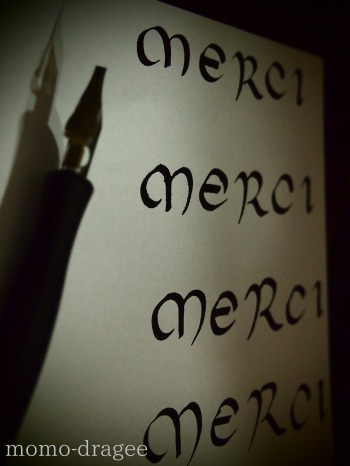 MERCI
MERCI
MERCI
MERCI
momo-dragee